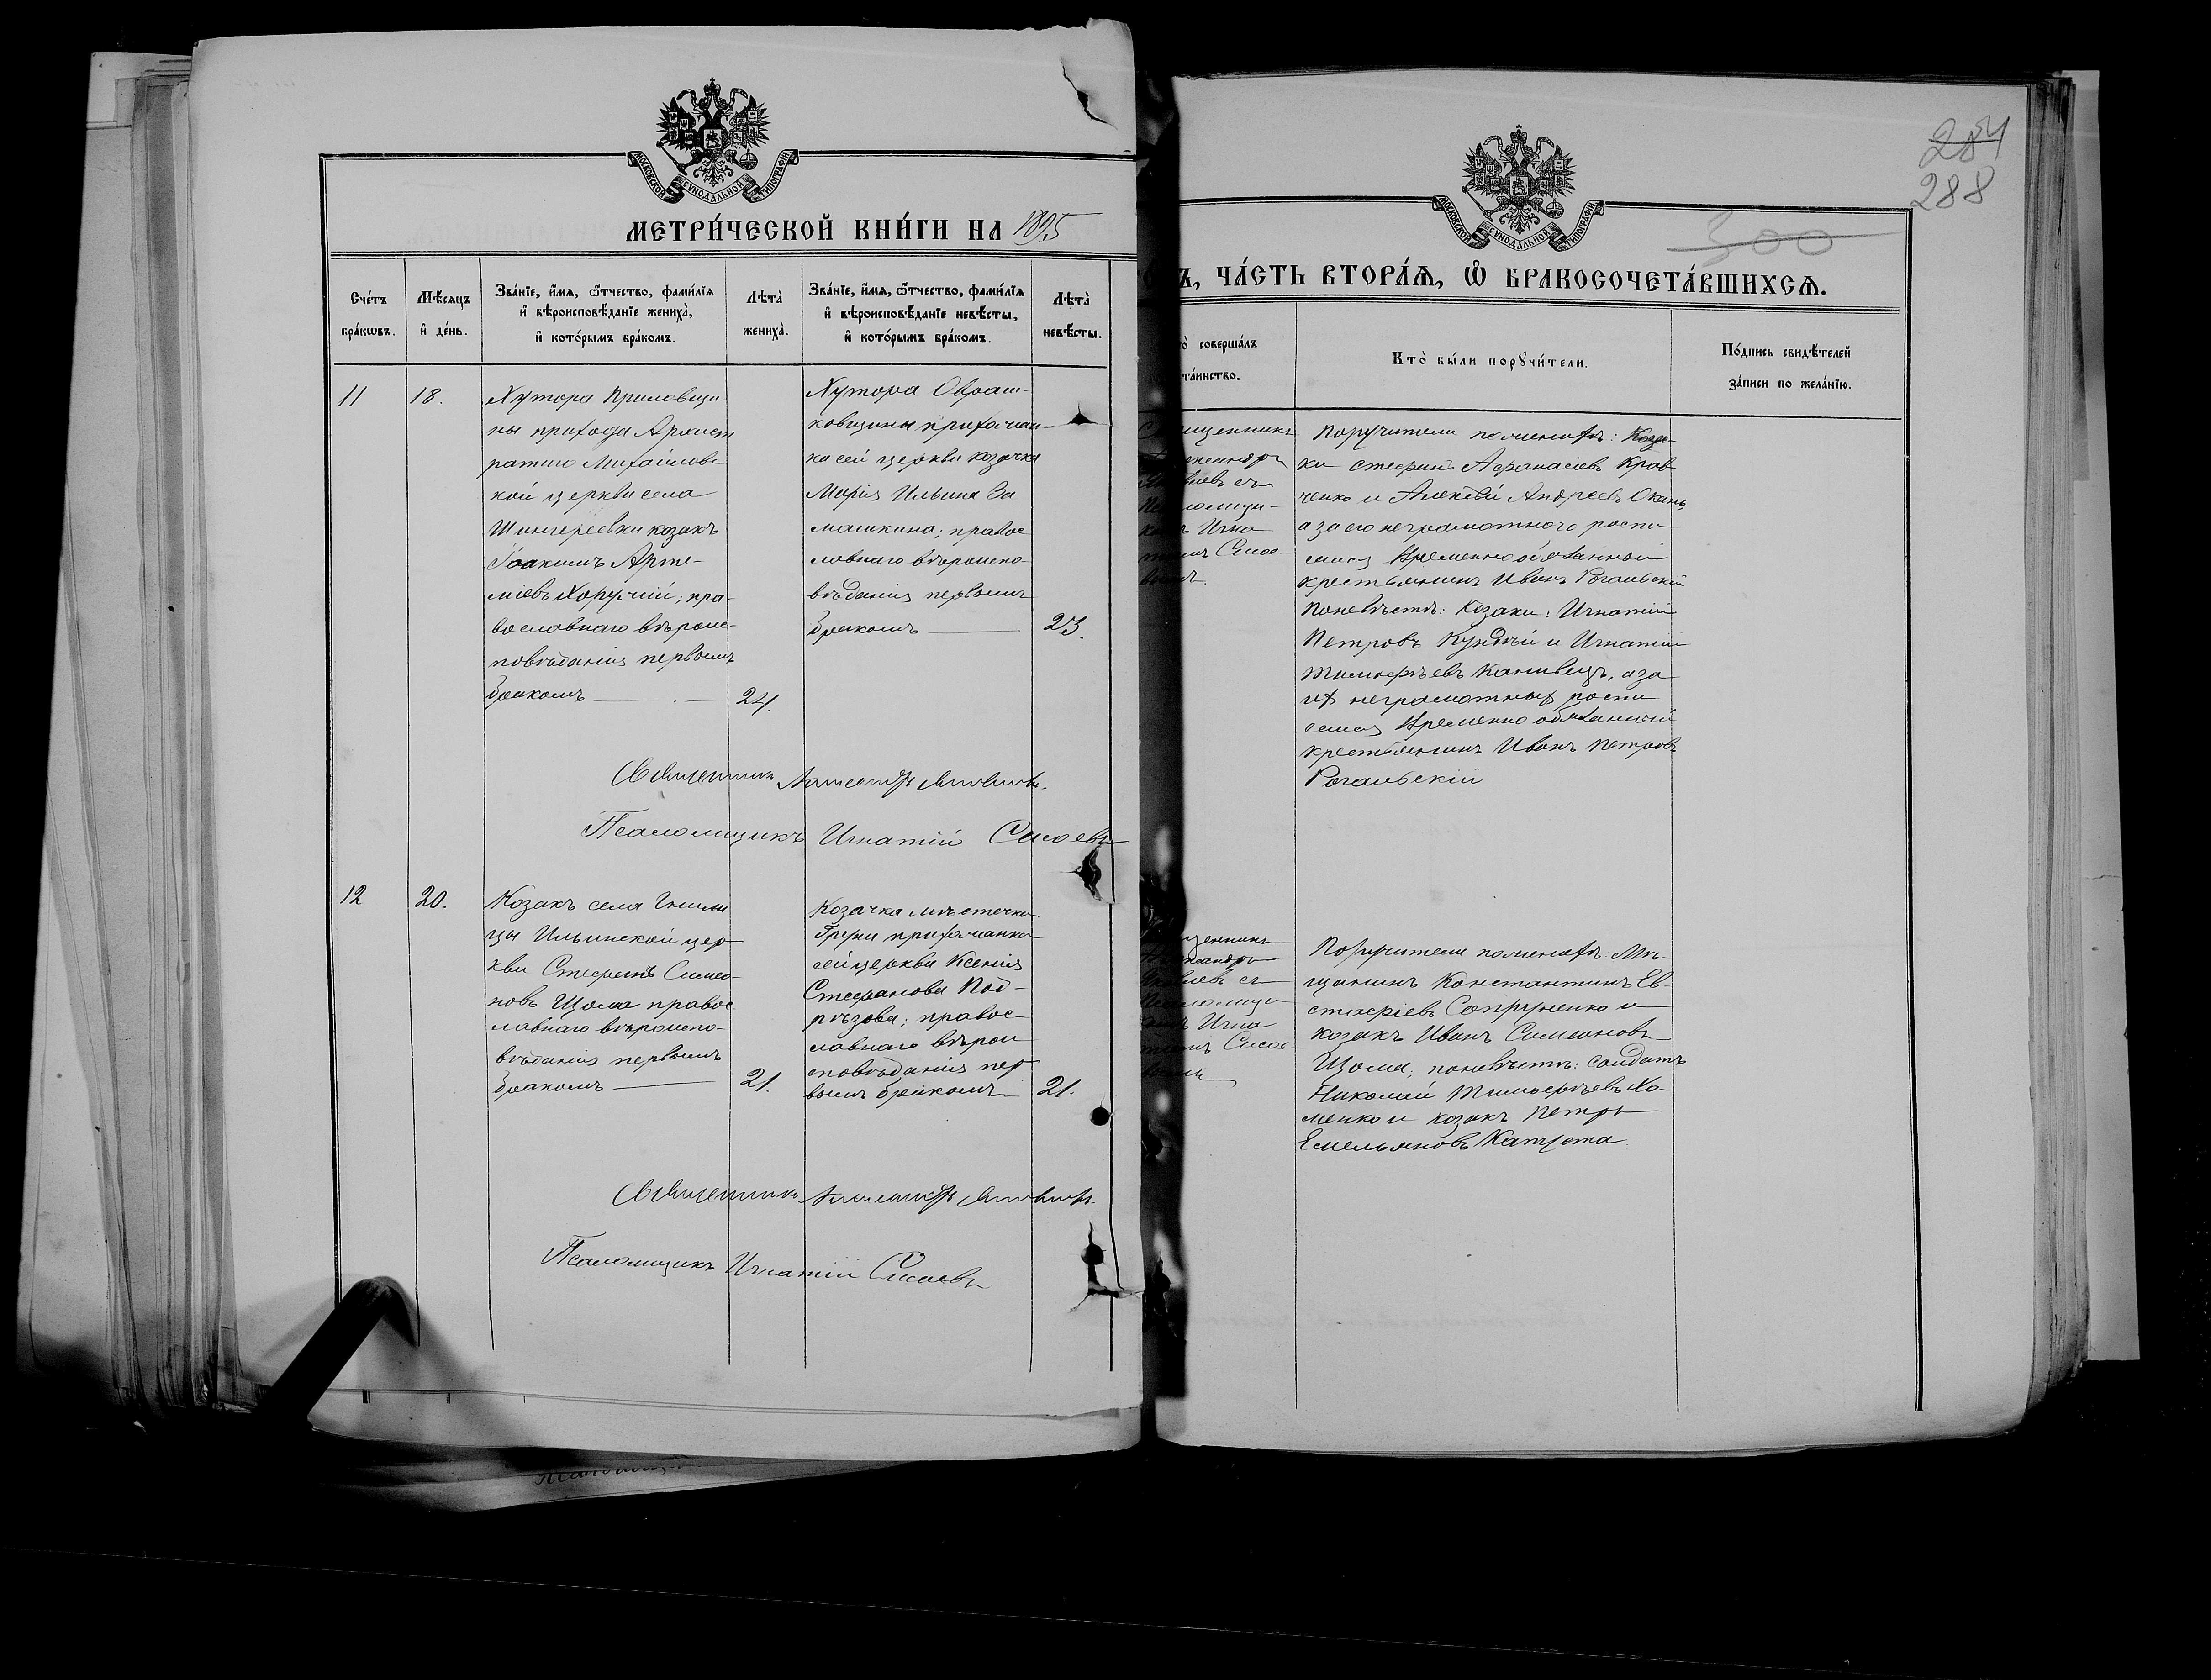 МОСКОВСКОЙ СУНОДАЛЬНОЙ ТИПОГРАФІИ
МЕТРИ́ЧЕСКОЙ КНИ́ГИ НА 1895
Сче́тъ бра́кѡвъ.
Мѣ́сяцъ и де́нь.
Зва́нїе, и́мя, ѻ҆́тчество, фами́лїя
и҆ вѣроисповѣ́данїе жениха̀,
и҆ кото́рымъ бра́комъ.
Лѣта̀ жениха̀.
Зва́нїе, и́мя, ѻ҆́тчество, фами́лїя
и҆ вѣроисповѣ́данїе невѣ́сты,
и҆ кото́рымъ бра́комъ.
Лѣта̀ невѣ́сты.
11
18.
Хутора Криловщи-
ны прихода Архист
ратиго Михайловс
кой церкви села
козакъ
Іоакимъ Арте-
міевъ Хоружій; пра-
вославнаго вѣроис-
повѣданія первымъ
бракомъ
24.
Хутора Овраш-
ковщины прихожан-
ка сей церкви козачка
Марія Ильина За
машкина; правос
лавнаго вѣроиспо-
вѣданія первымъ
бракомъ
23.
Священникъ Александръ
Псаломщикъ Игнатій Сисоевъ
12
20.
Козакъ села Гнили
цы Ильинской цер
кви Стефанъ Симео-
новъ Щома правос
лавнаго вѣроиспо-
вѣданія первымъ
бракомъ
21.
Козачка мѣстечка
прихожанка
сей церкви Ксенія
Стефанова Под-
рѣзова; правос-
лавнаго вѣрои
сповѣданія пер
вымъ бракомъ
21.
Священникъ Александръ
Псаломщикъ Игнатій Сисоевъ
284
288
300
МОСКОВСКОЙ СУНОДАЛЬНОЙ ТИПОГРАФІИ
Ъ, ЧА́СТЬ ВТОРА́Я, Ѡ҆ БРАКОСОЧЕТА́ВШИХСЯ.
совершáлъ
та́инство.
Кто̀ бы́ли порꙋчи́тели.
По́дпись свидѣ́телей
за́писи по жела́нїю.
щенникъ
ександръ
Псаломщи-
Игна
Сисое-
вымъ
Поручители по женихѣ: Коза-
ки Стефанъ Афанасіевъ Крав
ченко и Алексѣй Андреевъ
а за его неграмотнаго роспи
сался Временно обязанный
крестьянинъ Иванъ Рогальскій
По невѣстѣ: Козаки: Игнатій
Петровъ и Игнатій
Тимофѣевъ Канивецъ, а за
ихъ неграмотныхъ роспи
сался Временно обязанный
крестьянинъ Иванъ Петровъ
Рогальскій
щенникъ
ксандръ
Псаломщи
Игна
Сисое-
Поручители по женихѣ: Мѣ-
щанинъ Константинъ Ев-
стафіевъ Сопруненко и
козакъ Иванъ Симеоновъ
Щома; по невѣстѣ: солдатъ
Николай Тимофѣевъ Хо-
менко и козакъ Петръ
Емельяновъ